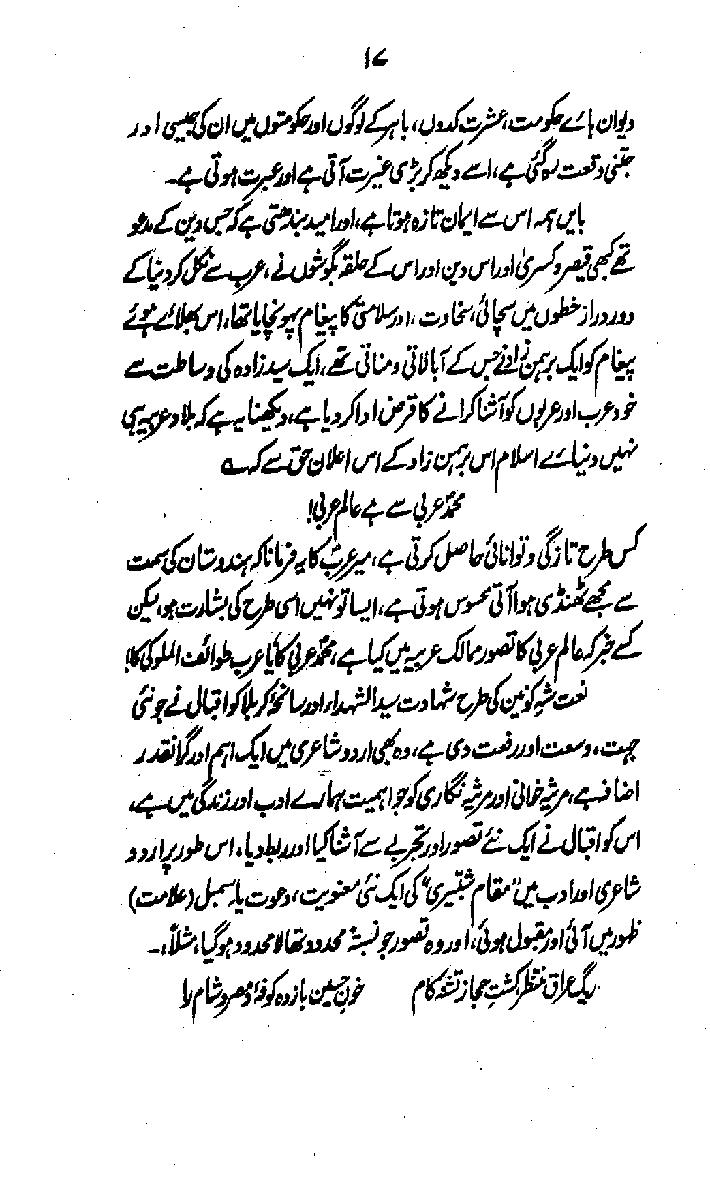 ۱۷
دیوان ہائے حکومت، عشرت کدوں، باہر کے لوگوں اور حکومتوں میں ان کی جیسی اور
جتنی وقعت رہ گئی ہے، اسے دیکھ کر بڑی غیرت آتی ہے اور عبرت ہوتی ہے۔
بایں ہمہ اس سے ایمان تازہ ہوتا ہے، اور امید بندھتی ہے کہ جس دین کے مدعو
تھے کبھی قیصر و کسریٰ اور اس دین اور اس کے حلقہ بگوشوں نے، عرب سے نکل کر دنیا کے
دور دراز خطوں میں سچائی، سخاوت، اور سلامتی کا پیغام پہونچایا تھا، اس بھلائے ہوئے
پیغام کو ایک برہمن زادے نے جس کے آبا لاتی و مناتی تھے، ایک سید زادہ کی وساطت سے
خود عرب اور عربوں کو آشنا کرانے کا قرض ادا کر دیا ہے، دیکھنا یہ ہے کہ بلاد عربیہ ہی
نہیں دنیائے اسلام اس برہمن زاد کے اس اعلان حق سے کہ۔
محمدؐ عربی سے ہے عالم عربی!
کس طرح تازگی و توانائی حاصل کرتی ہے، میر عربؐ کا یہ فرمانا کہ ہندوستان کی سمت
سے مجھے ٹھنڈی ہوا آتی محسوس ہوتی ہے، ایسا تو نہیں اسی طرح کی بشارت ہو، لیکن
کسے خبر کہ عالم عربی کا تصور ممالک عربیہ میں کیا ہے، محمدؐ عربی کا یا عرب طوائف الملوکی کا!
نعت شہِ کونین کی طرح شہادت سید الشہداء اور سانحۂ کربلا کو اقبال نے جو نئی
جہت، وسعت اور رفعت دی ہے، وہ بھی اردو شاعری میں ایک اہم اور گرانقدر
اضافہ ہے، مرثیہ خوانی اور مرثیہ نگاری کو جو اہمیت ہمارے ادب اور زندگی میں ہے،
اس کو اقبال نے ایک نئے تصور اور تجربے سے آشنا کیا اور ربط دیا، اس طور پر اردو
شاعری اور ادب میں "مقام شبیری" کی ایک نئی معنویت، دعوت یا سمبل (علامت)
ظہور میں آئی اور مقبول ہوئی، اور وہ تصور جو نسبتہً محدود تھا لا محدود ہو گیا، مثلاً،۔
ریگ عراق منتظر کشتِ حجاز تشنہ کام خونِ حسین باز دہ کوفہ و مصر و شام را